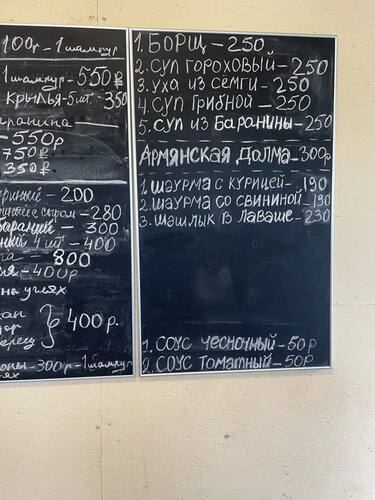 100р - 1 шампур
1 шампур - 550₽
крылья - 5 шт. - 350
550₽
750₽
350₽
200
с сыром - 280
300
4 шт - 400
800
400р
на углях
400р.
300р - 1 шампур
1. БОРЩ - 250
2. СУП ГОРОХОВЫЙ - 250
3. УХА ИЗ СЁМГИ - 250
4. СУП ГРИБНОЙ - 250
5. СУП ИЗ БАРАНИНЫ - 250
АРМЯНСКАЯ ДОЛМА - 300р
1. ШАУРМА С КУРИЦЕЙ - 190
2. ШАУРМА СО СВИНИНОЙ - 190
3. ШАШЛЫК В ЛАВАШЕ - 230
1. СОУС ЧЕСНОЧНЫЙ - 50р
2. СОУС ТОМАТНЫЙ - 50р